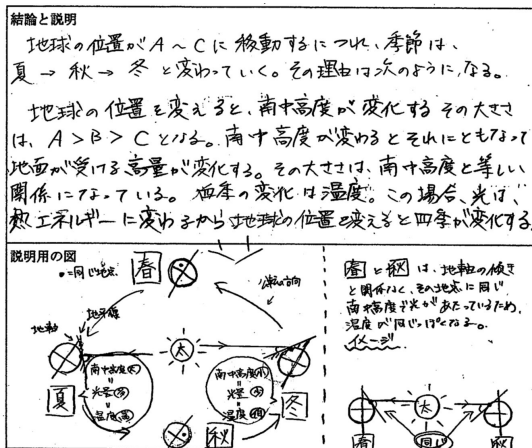 結論と説明
地球の位置がA～Cに移動するにつれ、季節は、
夏→秋→冬と変わっていく。その理由は次のように、なる。
地球の位置を変えると、南中高度が変化する その大きさ
は、A>B>Cとなる。南中高度が変わるとそれにともなって
地面が受ける光量が変化する。その大きさは、南中高度と等しい
関係になっている。四季の変化は温度。この場合、光は、
熱エネルギーに変わるから地球の位置を変えると四季が変化する
説明用の図
●=同じ地点
春
公転の方向
地軸
地平線
太
南中高度(大)
=
光量
=
温度(高)
夏
南中高度(小)
=
光量(小)
=
温度(低)
冬
秋
春と秋は、地軸の傾き
と関係なく、その地点に同じ
南中高度で光があたっているため、
温度が同じっぽくなる。
イメージ
太
春
同じ
秋